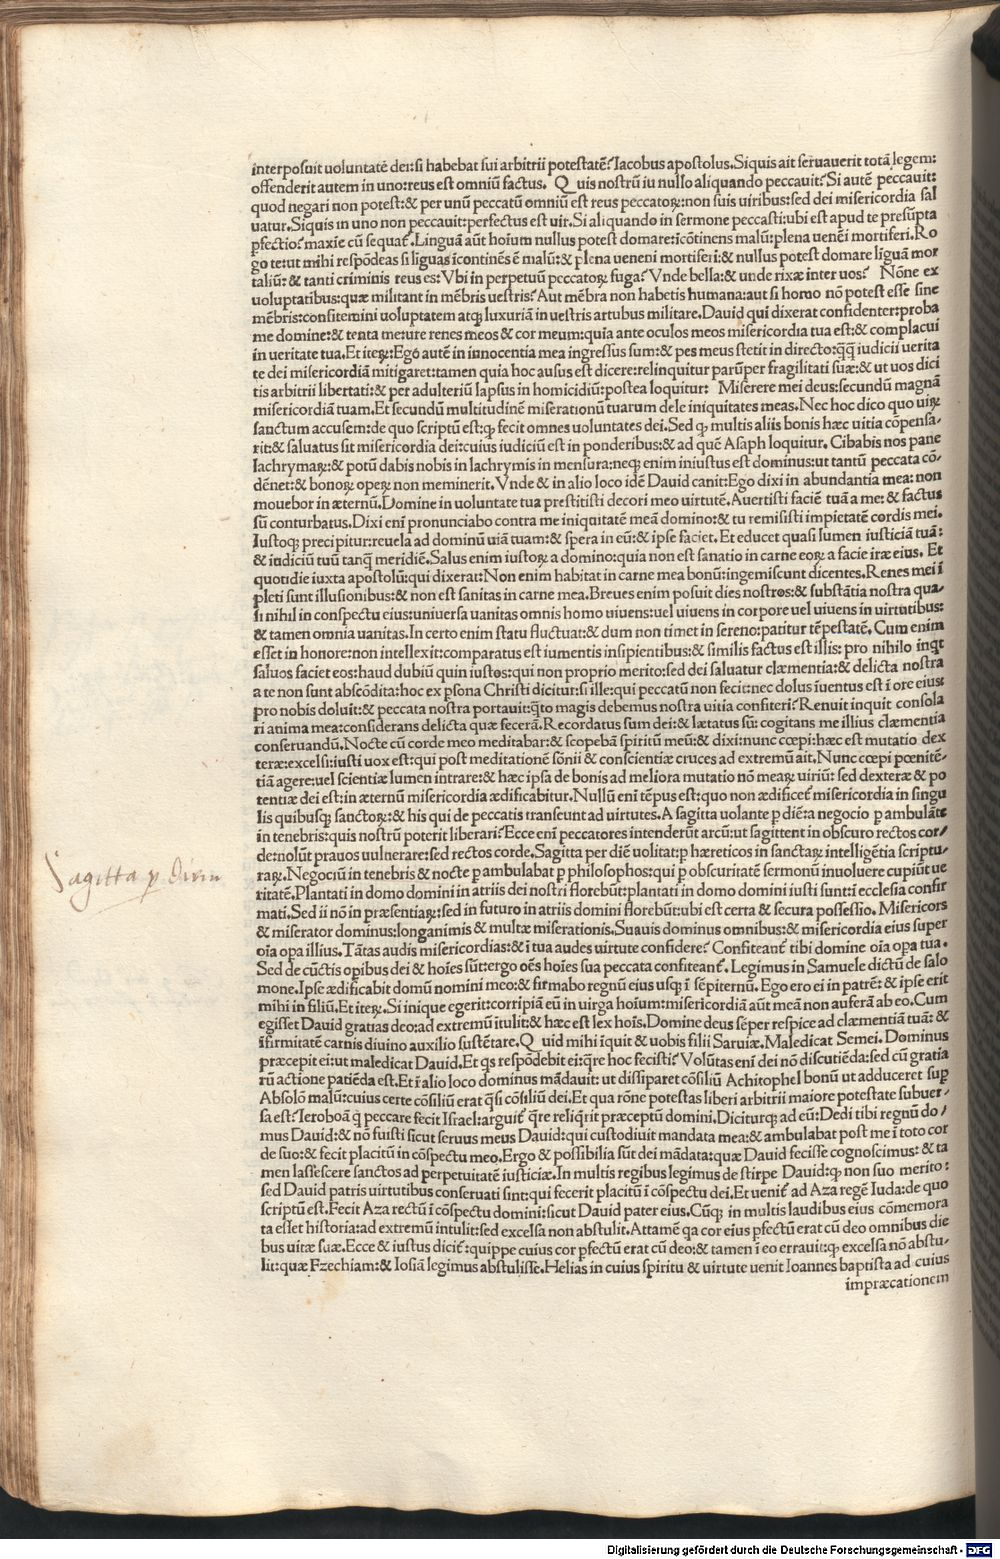 interposuit uoluntatē dei:si habebat sui arbitrii potestatē?Iacobus apostolus.Siquis ait seruauerit totā legem:
offenderit autem in uno:reus est omniū factus. Quis nostrū iu nullo aliquando peccauit?Si autē peccauit:
quod negari non potest:& per unū peccatū omniū est reus peccatoꝝ:non suis uiribus:sed dei misericordia sal
uatur.Siquis in uno non peccauit:perfectus est uir.Si aliquando in sermone peccasti:ubi est apud te presūpta
pfectio?maxie cū sequat̄.Linguā aūt hoium nullus potest domare:icōtinens malū:plena uenēi mortiferi.Ro
go te:ut mihi respōdeas si liguas icontinēs ē malū:& plena ueneni mortiferi:& nullus potest domare liguā mor
taliū:& tanti criminis reus es:Vbi in perpetuū peccatoꝝ fuga?Vnde bella:& unde rixæ inter uos? Nōne ex
uoluptatibus:quæ militant in mēbris uestris?Aut mēbra non habetis humana:aut si homo nō potest esse sine
mēbris:confitemini uoluptatem atqꝫ luxuriā in uestris artubus militare.Dauid qui dixerat confidenter:proba
me domine:& tenta me:ure renes meos & cor meum:quia ante oculos meos misericordia tua est:& complacui
in ueritate tua.Et iteꝝ:Ego autē in innocentia mea ingressus sum:& pes meus stetit in directo:q̄q̄ iudicii uerita
te dei misericordiā mitigaret:tamen quia hoc ausus est dicere:relinquitur parūper fragilitati suæ:& ut uos dici
tis arbitrii libertati:& per adulteriū lapsus in homicidiū:postea loquitur: Miserere mei deus:secundū magnā
misericordiā tuam.Et secundū multitudinē miserationū tuarum dele iniquitates meas.Nec hoc dico quo uiꝝ
sanctum accusem:de quo scriptū est:qꝫ fecit omnes uoluntates dei.Sed qꝫ multis aliis bonis hæc uitia cōpensa/
rit:& saluatus sit misericordia dei:cuius iudiciū est in ponderibus:& ad quē Asaph loquitur.Cibabis nos pane
lachrymaꝝ:& potū dabis nobis in lachrymis in mensura:neqꝫ enim iniustus est dominus:ut tantū peccata cō/
dēnet:& bonoꝝ opeꝝ non meminerit.Vnde & in alio loco idē Dauid canit:Ego dixi in abundantia mea:non
mouebor in æternū.Domine in uoluntate tua prestitisti decori meo uirtutē.Auertisti faciē tuā a me:& factus
sū conturbatus.Dixi eni pronunciabo contra me iniquitatē meā domino:& tu remisisti impietatē cordis mei.
Iustoqꝫ precipitur:reuela ad dominū uiā tuam:& spera in eū:& ipse faciet.Et educet quasi lumen iusticiā tuā:
& iudiciū tuū tanq̄ meridiē.Salus enim iustoꝝ a domino:quia non est sanatio in carne eoꝝ a facie iræ eius. Et
quotidie iuxta apostolū:qui dixerat:Non enim habitat in carne mea bonū:ingemiscunt dicentes.Renes mei ī
pleti sunt illusionibus:& non est sanitas in carne mea.Breues enim posuit dies nostros:& substātia nostra qua/
si nihil in conspectu eius:uniuersa uanitas omnis homo uiuens:uel uiuens in corpore uel uiuens in uirtutibus:
& tamen omnia uanitas.In certo enim statu fluctuat:& dum non timet in sereno:patitur tēpestatē.Cum enim
esset in honore:non intellexit:comparatus est iumentis insipientibus:& similis factus est illis: pro nihilo inqt
saluos faciet eos:haud dubiū quin iustos:qui non proprio merito:sed dei saluatur clæmentia:& delicta nostra
a te non sunt abscōdita:hoc ex psona Christi dicitur:si ille:qui peccatū non fecit:nec dolus iuentus est ī ore eius:
pro nobis doluit:& peccata nostra portauit:q̄to magis debemus nostra uitia confiteri?Renuit inquit consola
ri anima mea:considerans delicta quæ fecerā.Recordatus sum dei:& lætatus sū:cogitans me illius clæmentia
conseruandū.Nocte cū corde meo meditabar:& scopebā spiritū meū:& dixi:nunc cœpi:hæc est mutatio dex
teræ:excelsi:iusti uox est:qui post meditationē sōnii & conscientiæ cruces ad extremū ait.Nunc cœpi pœnitē/
tiā agere:uel scientiæ lumen intrare:& hæc ipsa de bonis ad meliora mutatio nō meaꝝ uiriū: sed dexteræ & po
tentiæ dei est:in æternū misericordia ædificabitur.Nullū eni tēpus est:quo non ædificet̄ misericordia in singu
lis quibusqꝫ sanctoꝝ:& his qui de peccatis transeunt ad uirtutes.A sagitta uolante p diē:a negocio p ambulāte
in tenebris:quis nostrū poterit liberari?Ecce eni peccatores intenderūt arcū:ut sagittent in obscuro rectos cor/
de:nolūt prauos uulnerare:sed rectos corde.Sagitta per diē uolitat:p hæreticos in sanctaꝝ intelligētia scriptu/
raꝝ.Negociū in tenebris & nocte p ambulabat p philosophos:qui p obscuritatē sermonū inuoluere cupiūt ue
ritatē.Plantati in domo domini in atriis dei nostri florebūt:plantati in domo domini iusti sunt:i ecclesia confir
mati.Sed ii nō in præsentiaꝝ:sed in futuro in atriis domini florebūt:ubi est certa & secura possessio. Misericors
& miserator dominus:longanimis & multæ miserationis.Suauis dominus omnibus:& misericordia eius super
oīa opa illius.Tātas audis misericordias:& ī tua audes uirtute confidere? Confiteant̄ tibi domine oīa opa tua.
Sed de cūctis opibus dei & hoīes sūt:ergo oēs hoīes sua peccata confiteant̄. Legimus in Samuele dictū de salo
mone.Ipse ædificabit domū nomini meo:& firmabo regnū eius usqꝫ ī sēpiternū. Ego ero ei in patrē:& ipse erit
mihi in filiū.Et iteꝝ.Si inique egerit:corripiā eū in uirga hoīum:misericordiā aūt meā non auferā ab eo.Cum
egisset Dauid gratias deo:ad extremū itulit:& hæc est lex hoīs.Domine deus sēper respice ad clæmentiā tuā:&
īfirmitatē carnis diuino auxilio sustētare.Quid mihi īquit & uobis filii Saruiæ.Maledicat Semei. Dominus
præcepit ei:ut maledicat Dauid.Et qs respōdebit ei:q̄re hoc fecisti? Volūtas eni dei nō discutiēda:sed cū gratia
rū actione patiēda est.Et ī alio loco dominus mādauit: ut dissiparet cōsiliū Achitophel bonū ut adduceret sup
Absolō malū:cuius certe cōsiliū erat q̄si cōsiliū dei.Et qua rōne potestas liberi arbitrii maiore potestate subuer/
sa est?Ieroboā q peccare fecit Israel:arguit̄ q̄re reliq̄rit præceptū domini.Diciturqꝫ ad eū:Dedi tibi regnū do/
mus Dauid:& nō fuisti sicut seruus meus Dauid:qui custodiuit mandata mea:& ambulabat post me ī toto cor
de suo:& fecit placitū in cōspectu meo.Ergo & possibilia sūt dei mādata:quæ Dauid fecisse cognoscimus:& ta
men lassescere sanctos ad perpetuitatē iusticiæ.In multis regibus legimus de stirpe Dauid:qꝫ non suo merito:
sed Dauid patris uirtutibus conseruati sint:qui fecerit placitū ī cōspectu dei.Et uenit̄ ad Aza regē Iuda:de quo
scriptū est.Fecit Aza rectū ī cōspectu domini:sicut Dauid pater eius.Cūqꝫ in multis laudibus eius cōmemora
ta esset historia:ad extremū intulit:sed excelsa non abstulit.Attamē qa cor eius pfectū erat cū deo omnibus die
bus uitæ suæ.Ecce & iustus dicit̄:quippe cuius cor pfectū erat cū deo:& tamen ī eo errauit:qꝫ excelsa nō abstu/
lit:quæ Ezechiam:& Iosiā legimus abstulisse.Helias in cuius spiritu & uirtute uenit Ioannes baptista ad cuius
impræcationem
Sagitta p diem
Digitalisierung gefördert durch die Deutsche Forschungsgemeinschaft - DFG